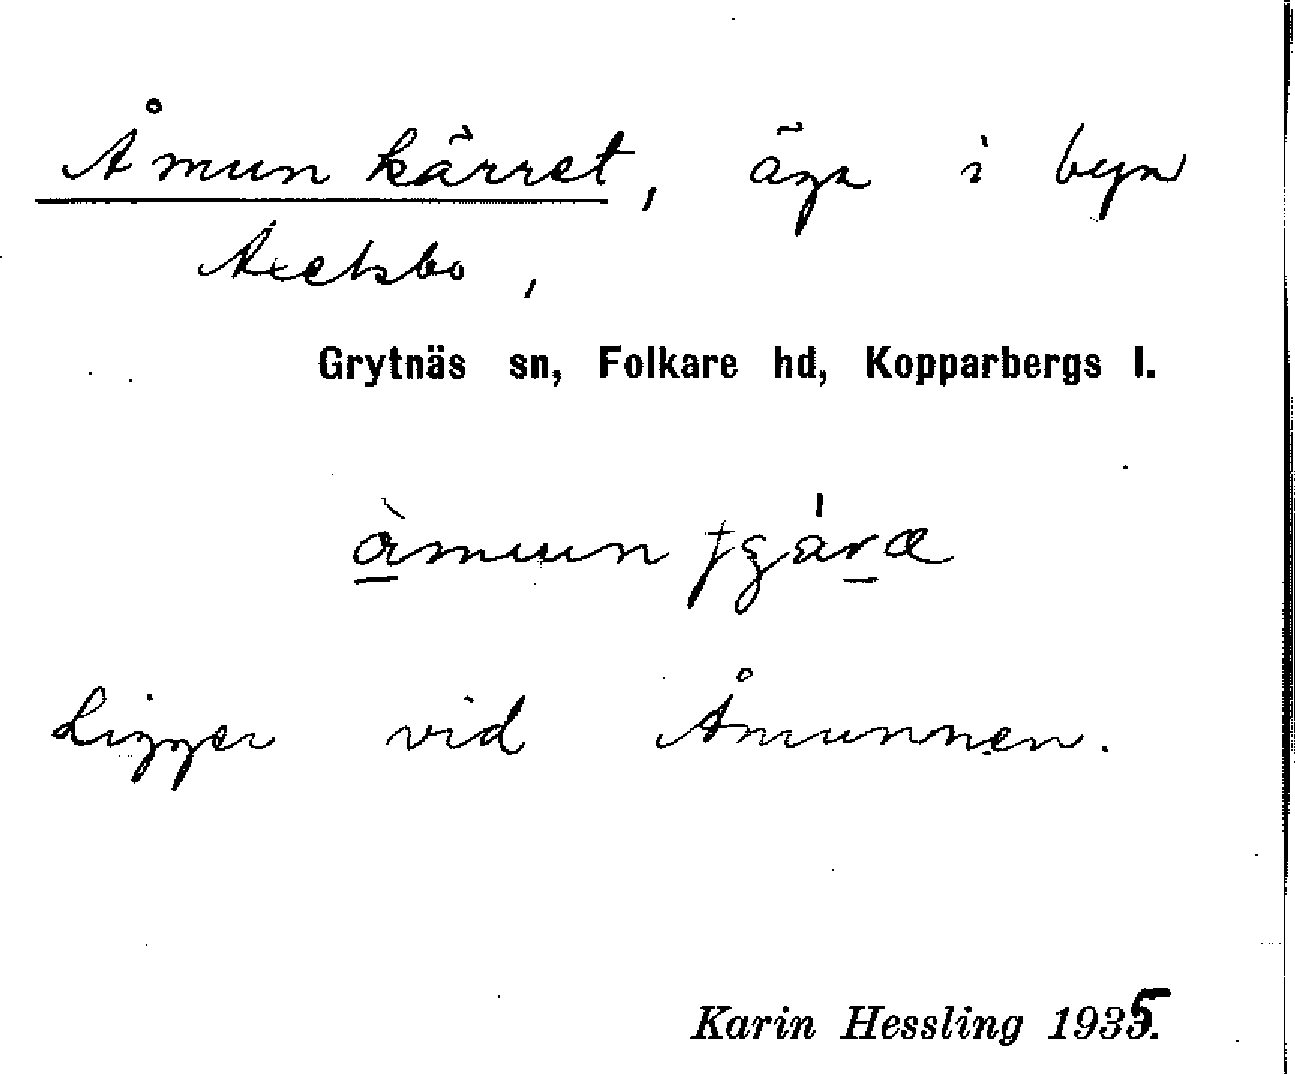 Åmunkärret, äga i byn
Axelsbo,
Grytnäs sn, Folkare hd, Kopparbergs l.
Ligger vid Åmunnen.
Karin Hessling 1935.